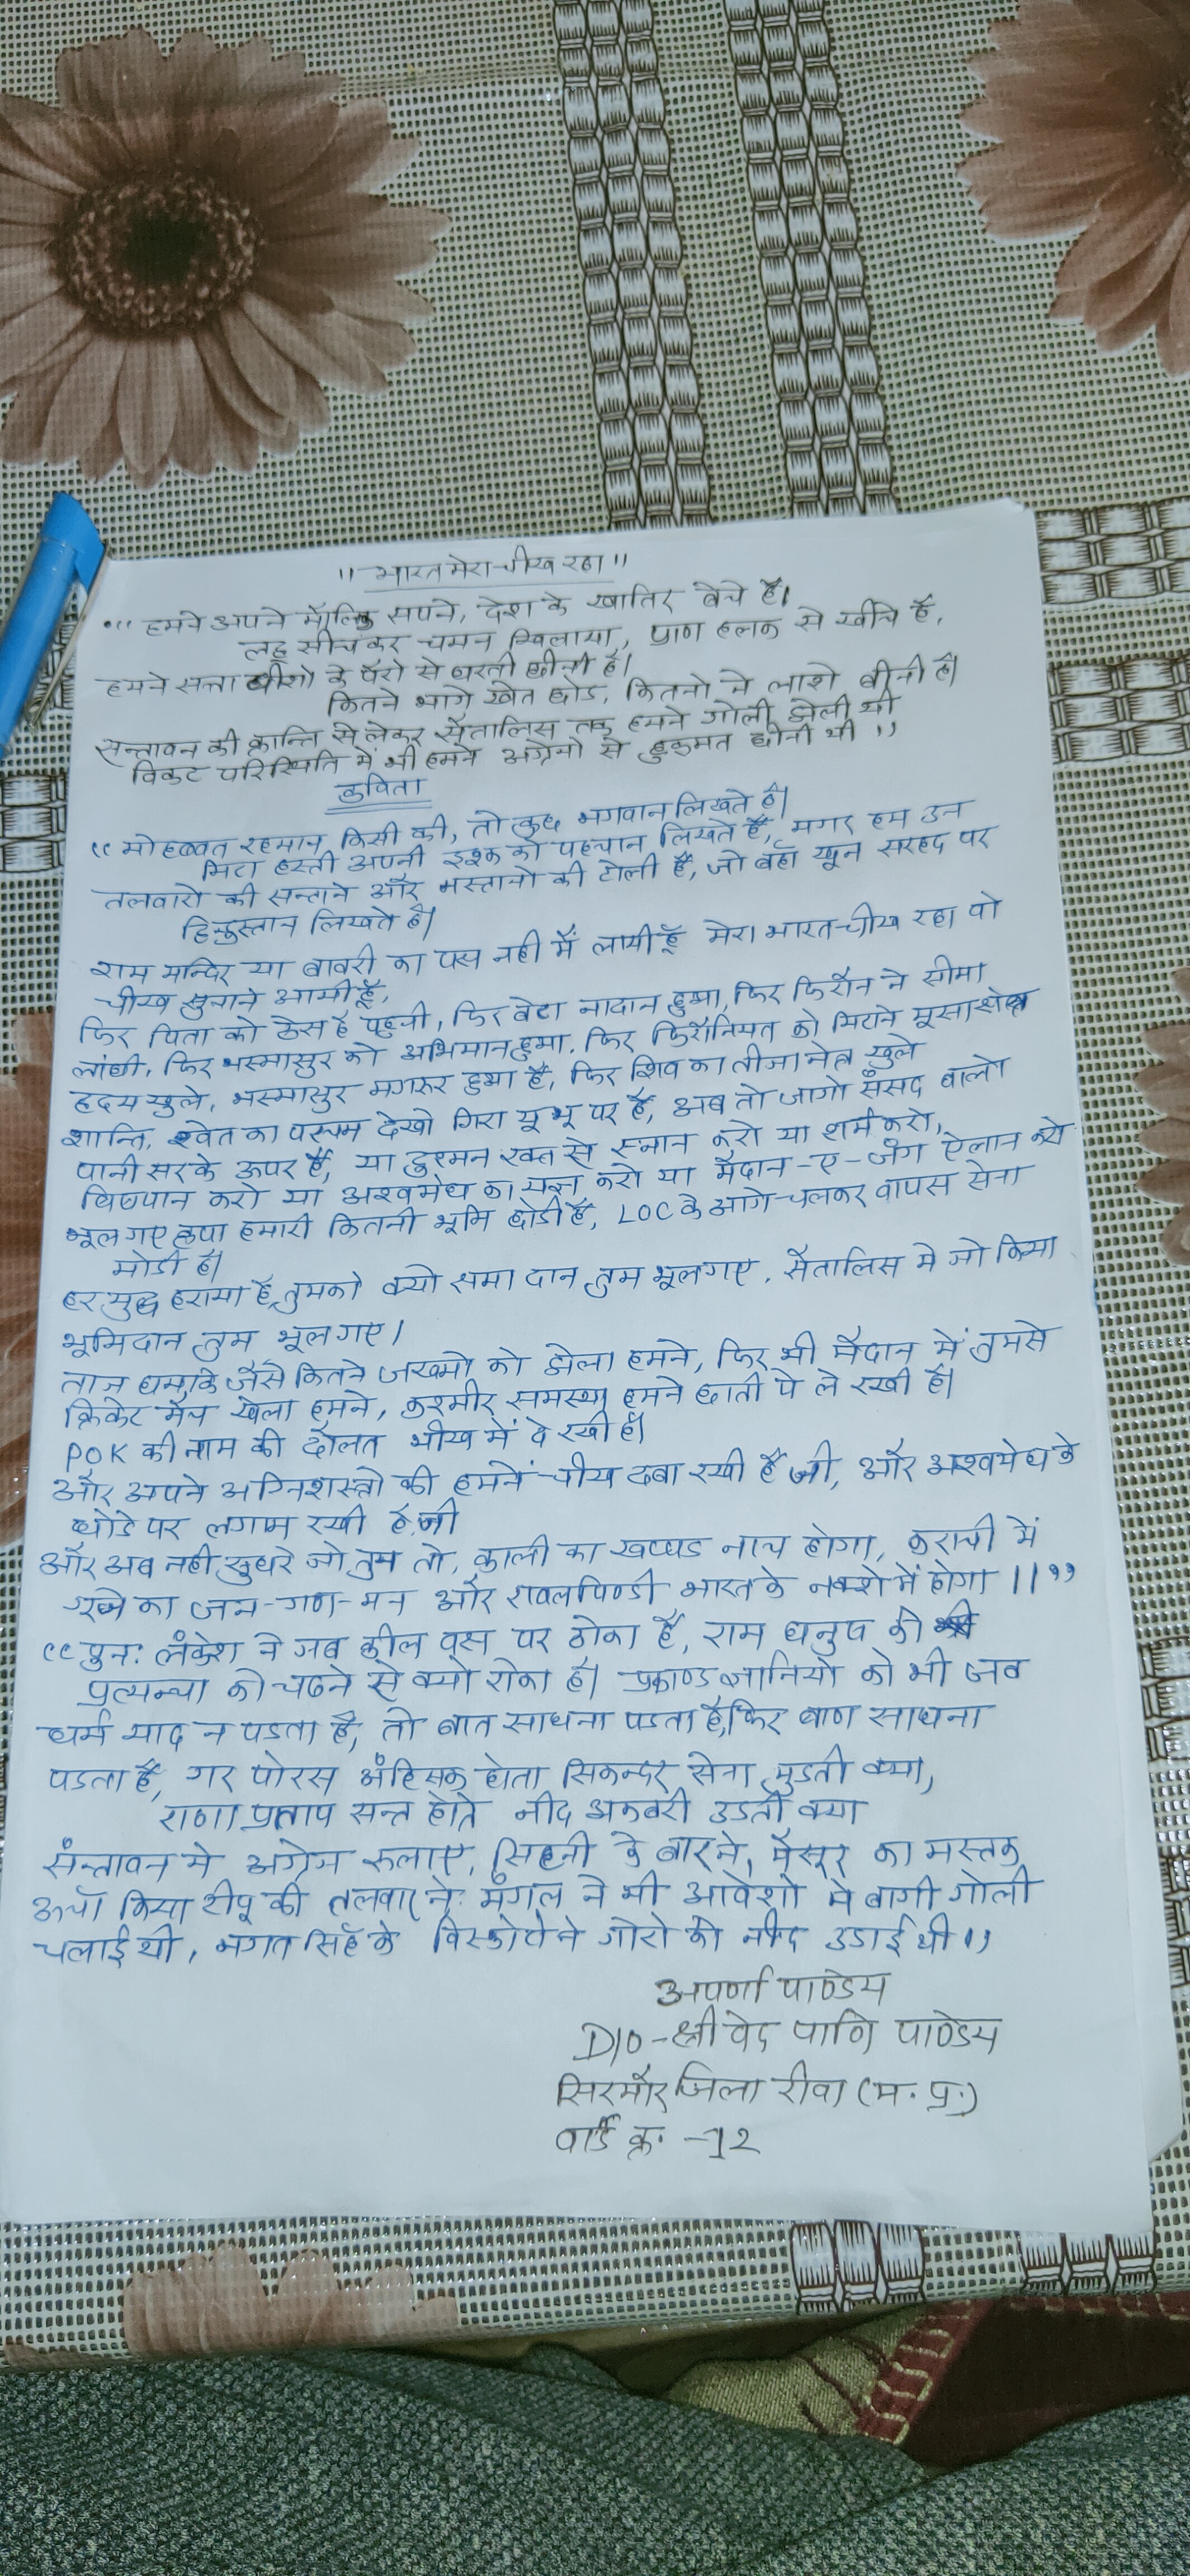 "भारत मेरा चीख रहा"
"हमने अपने सपने, देश के खातिर बेचे है।
लहू सीचकर चमन खिलाया, प्राण हलक से खींचे है,
हमने सत्ता धीशो के पैरो से धरती छीनी है।
कितने भागे खेत छोड, कितनो ने लाशे बीनी है।
सन्तावन की क्रान्ति से लेकर सैतालिस तक हमने गोली झेली थी
विकट परिस्थिति में भी हमने अंग्रेजो से हुकुमत छीनी थी"
कविता
"मोहब्बत रहमान किसी की, तो कुछ भगवान लिखते है।
मिटा हस्ती अपनी इश्क को पहचान लिखते है, मगर हम उन
तलवारो की सन्ताने और मस्तानो की टोली है, जो बहाँ खून सरहद पर
हिन्दुस्तान लिखते है।
राम मन्दिर या बावरी का पक्ष नही मैं लायी हूँ मेरा भारत चीख रहा वो
चीख सुनाने आयी हूँ,
फिर पिता को ठेस है पहुची, फिर बेटा नादान हुआ, फिर फिरौन ने सीमा
लांघी, फिर भस्मासुर को अभिमान हुआ. फिर फिरौनियत को मिटाने मूसा
हृदय खुले, भस्मासुर मगरूर हुआ है, फिर शिव का तीजा नेत्र खुले
शान्ति, श्वेत का परचम देखो गिरा यू भू पर है, अब तो जागो संसद वालो
पानी सर के ऊपर है, या दुश्मन रक्त से स्नान करो या शर्म करो,
विषपान करो या अश्वमेध का यज्ञ करो या मैदान-ए-जंग ऐलान करो
भूल गए कृपा हमारी कितनी भूमि छोडी है, LOC के आगे चलकर वापस सेना
मोडी है।
हर युद्ध हराया है, तुमको क्यो क्षमा दान तुम भूल गए, सैतालिस मे जो किया
भूमिदान तुम भूल गए।
ताज धमाके जैसे कितने जख्मो को झेला हमने, फिर भी मैदान में तुमसे
क्रिकेट मैच खेला हमने, कश्मीर समस्या हमने छाती पे ले रखी है।
POK की नाम की दौलत भीख में दे रखी है।
और अपने अग्निशस्त्रो की हमने चीख दबा रखी है जी, और अश्वमेध के
घोडे पर लगाम रखी है जी
और अब नही सुधरे जो तुम तो, काली का खप्पड नाच होगा, कराची में
गूंजे का जन-गण-मन और रावलपिण्डी भारत के नक्शे में होगा।।"
"पुनः लंकेश ने जब कील वक्ष पर ठोका है, राम धनुष की
प्रत्यन्चा को चढने से क्यो रोका है। प्रकाण्ड ज्ञानियो को भी जब
धर्म याद न पडता है, तो बात साधना पडता है, फिर बाण साधना
पडता है, गर पोरस अंहिसक होता सिकन्दर सेना मुडती क्या,
राणा प्रताप सन्त होते नीद अकबरी उडती क्या
संन्तावन मे अंग्रेज रूलाए, सिहनी के वार ने, मैसूर का मस्तक
ऊचाँ किया टीपू की तलवार ने, मंगल ने भी आवेशो मे बागी गोली
चलाई थी, भगत सिंह के विस्फोटो ने गोरो की नींद उडाई थी।"
अपर्णा पाण्डेय
D/O-श्री वेद पाणि पाण्डेय
सिरमौर जिला रीवा (म. प्र.)
वार्ड क्र. -12